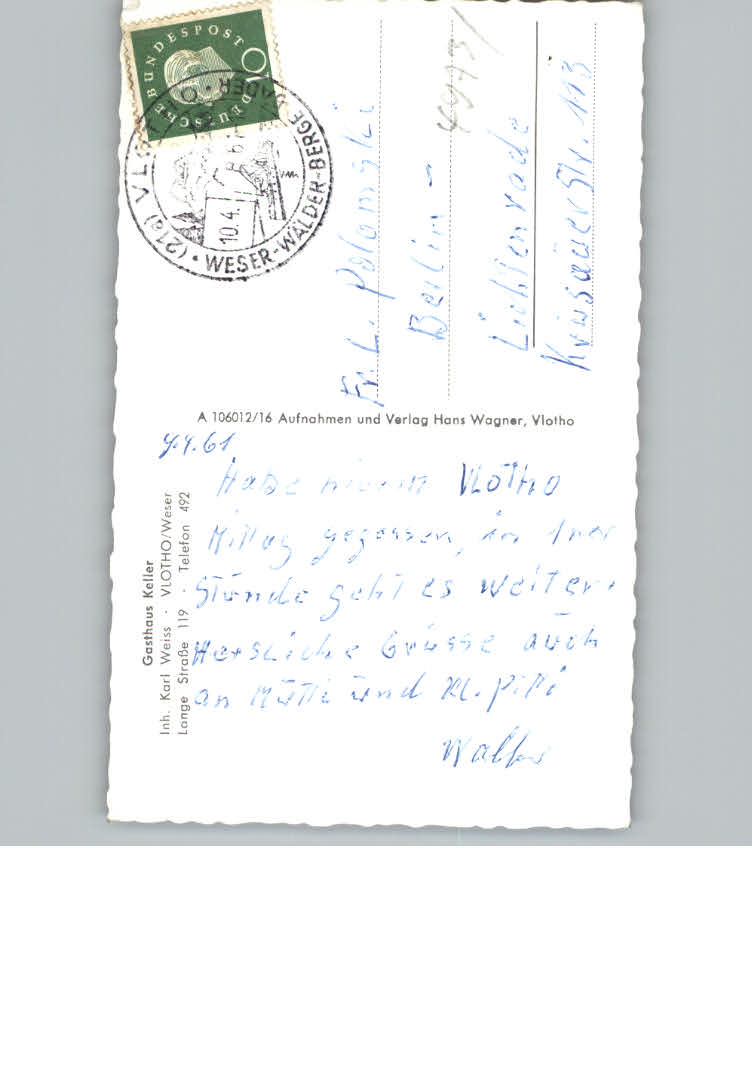 DEUTSCHE BUNDESPOST
(21a) VLOTHO
10.4.61
WESER-WÄLDER-BERGE-BÄDER
Frl. Polomski
Berlin -
Lichtenrade
Str. 113
4973/
A 106012/16 Aufnahmen und Verlag Hans Wagner, Vlotho
Gasthaus Keller
Inh. Karl Weiss · VLOTHO/Weser
Lange Straße 119 · Telefon 492
9.4.61
Habe hier in Vlotho
Mittag gegessen, in 1ner
Stunde geht es weiter.
Herzliche Grüsse auch
an Mutti und Kl. Pipi
Walter